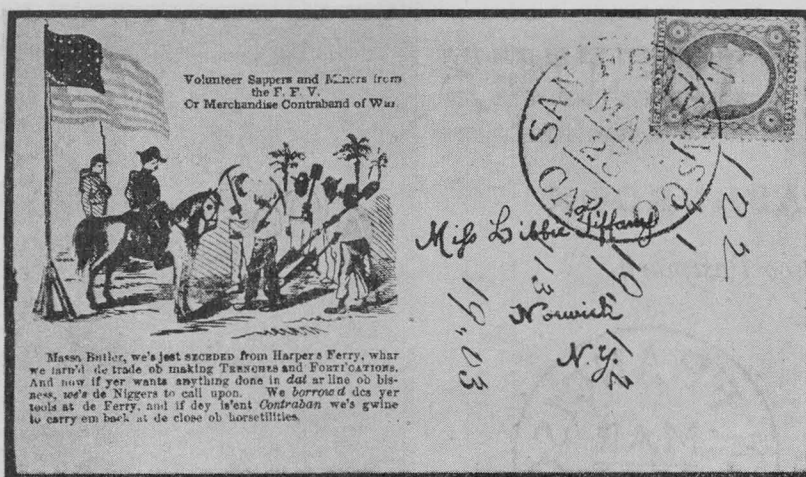 Volunteer Sappers and Miners from
the F. F. V.
Or Merchandise Contraband of War.
Massa Butler, we's jest SECEDED from Harper's Ferry, whar
we larn'd de trade ob making TRENCHES and FORTIFCATIONS.
And now if yer wants anything done in dat ar line ob bis-
ness, we's de Niggers to call upon. We borrow'd des yer
tools at de Ferry, and if dey is'ent Contraban we's gwine
to carry em back at de close ob horsetilities.
SAN FRANCISCO
MAY
CAL
Miss Libbie Tiffany
Norwich
N.Y.
122
1.13
19.03
19
12